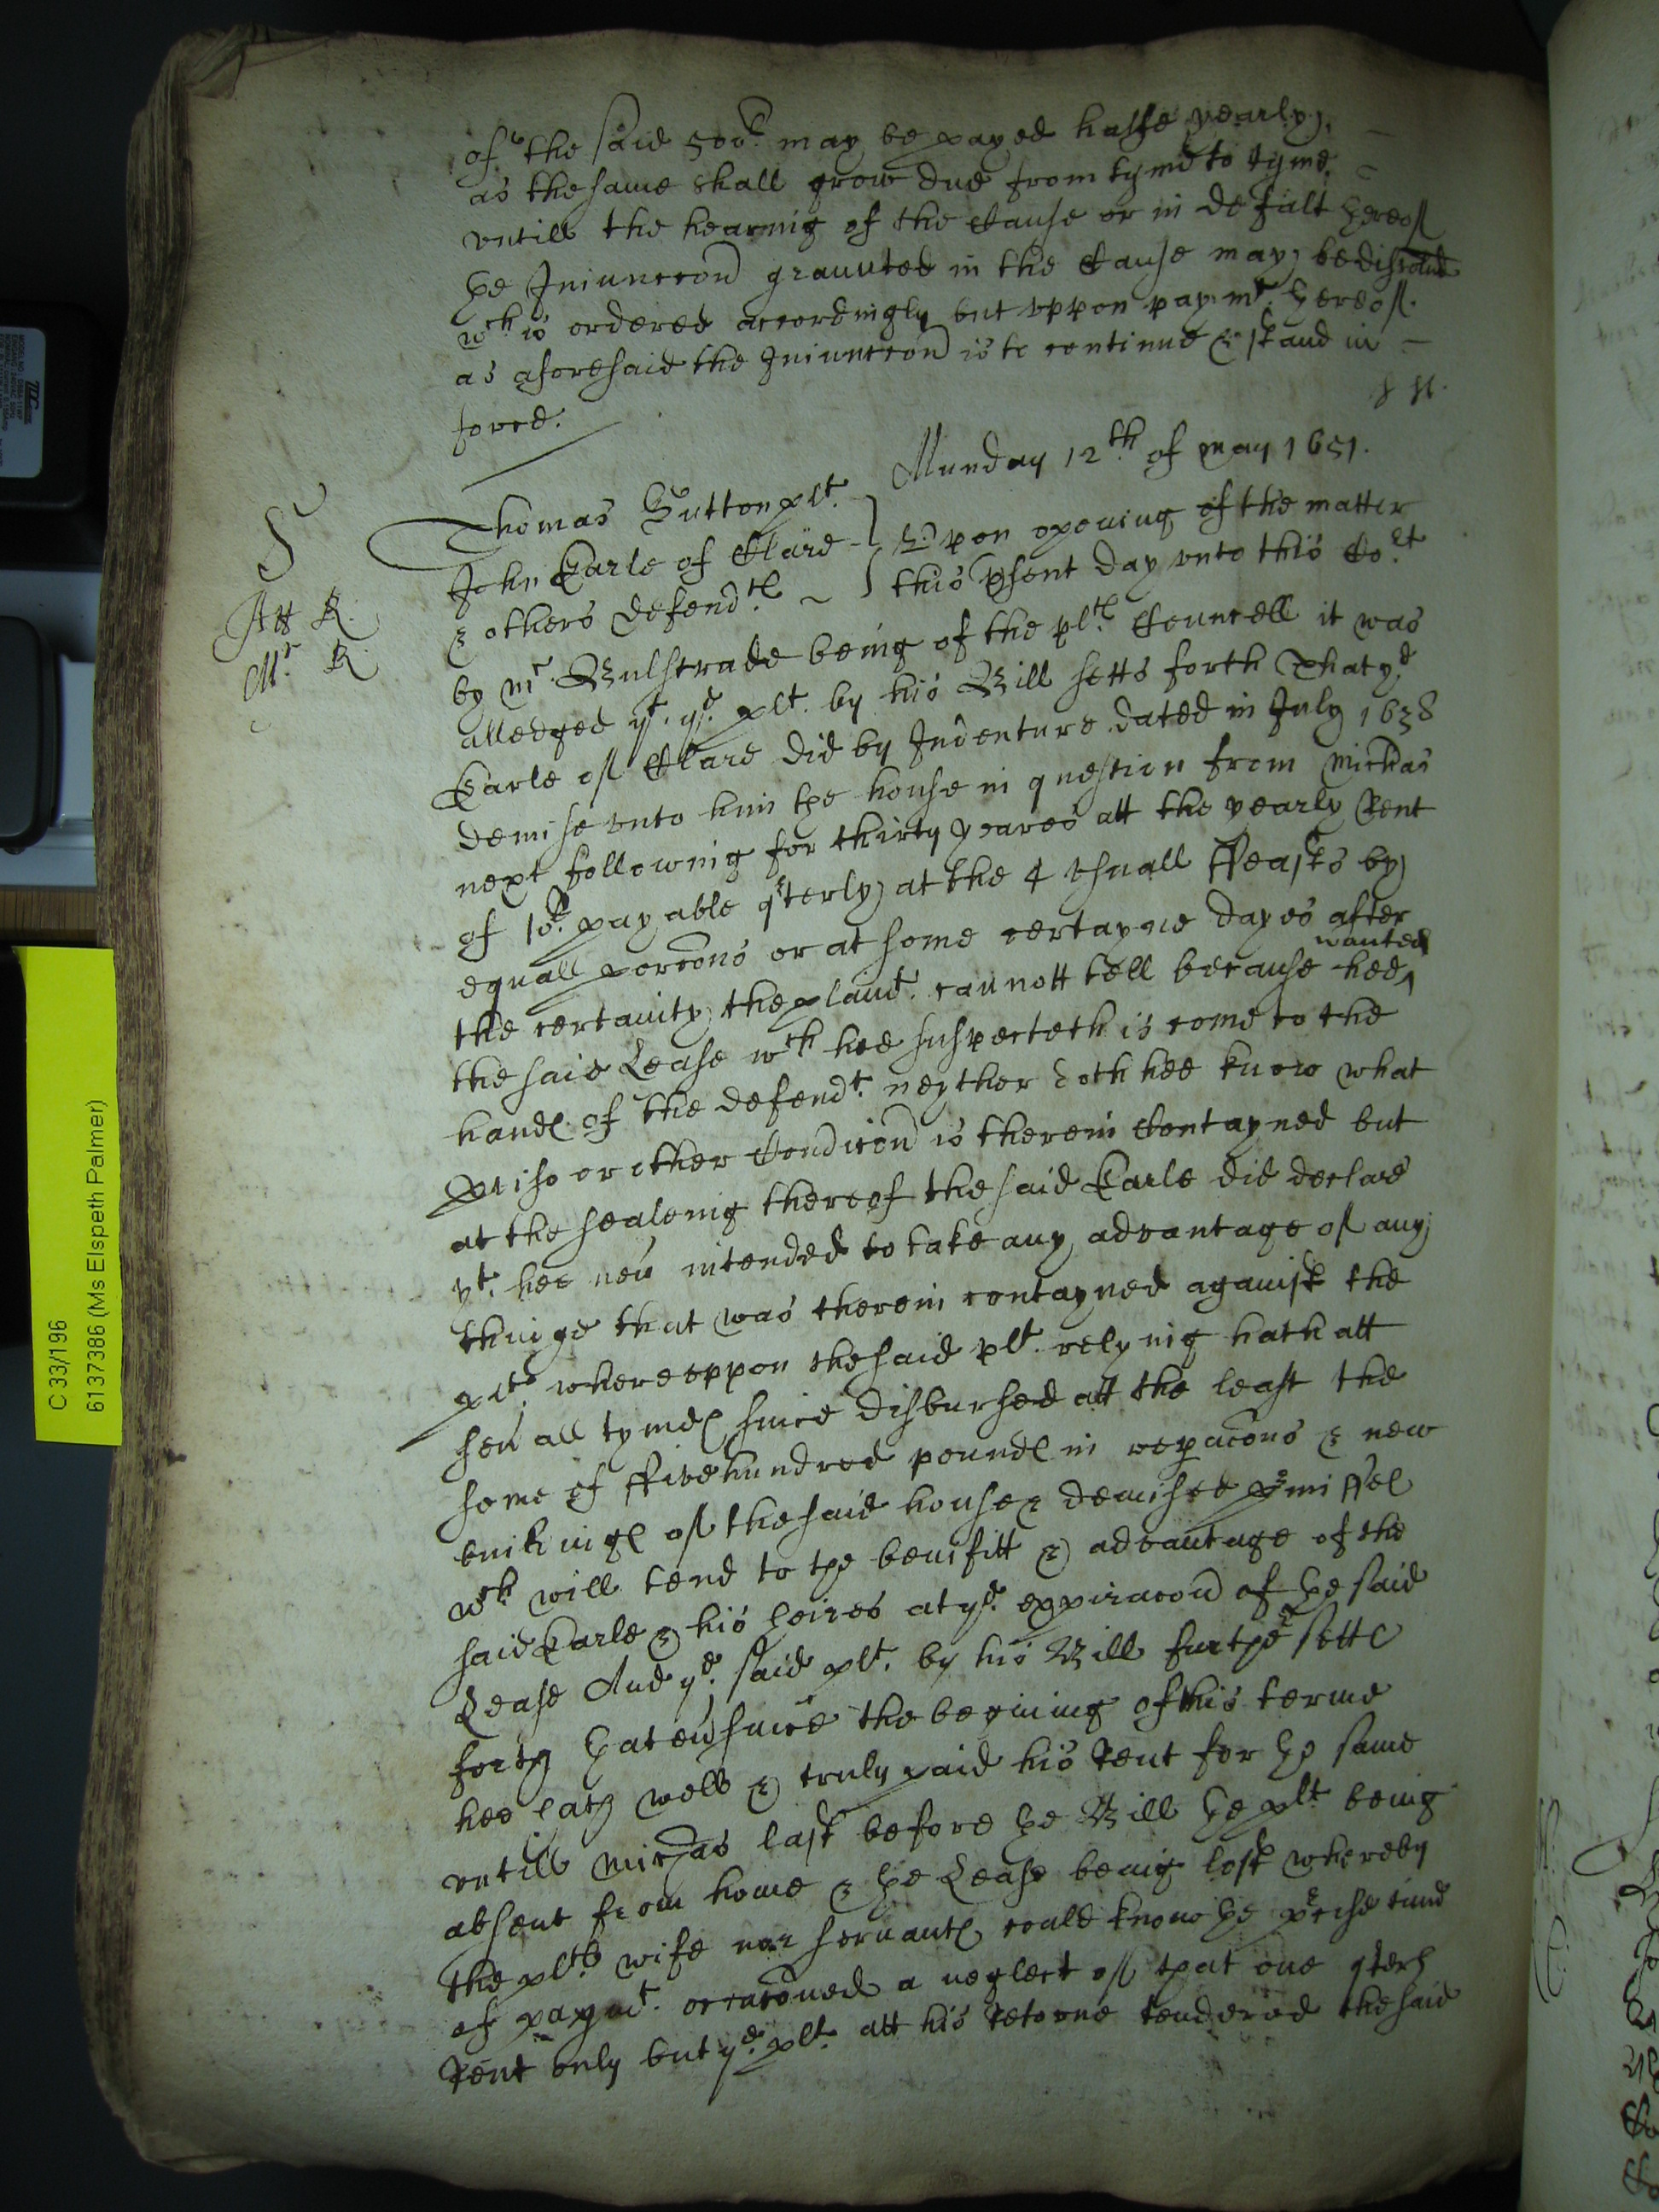 of the said 500li. may be payed halfe yearly,
as the same shall grow due from tyme to tyme,
vntill the hearinig of the Cause or in default hereof
the Iniunccon graunted in the Cause may be dissolued
wch is ordered accordingly but vppon paymt. hereof
as aforesaid the Iniunccon is to continue & stand in
force.
Munday 12th of may 1651.
S
Thomas Sutton plt.
John Earle of Clare
& others defendts
Vpon opening of the matter
this psent day vnto this Cort
Att R.
Mr R
by mr. Bulstrade being of the plts Councell it was
alledged yt. ye. plt. by his Bill setts forth That ye
Earle of Clare did by Indenture dated in July 1638
demise vnto him the house in question from michas
next following for thirty yeares att the yearly Rent
of 10li. payable qterly at the 4 vsuall ffeasts by
equall porcons or at some certayne dayes after
the certainty the plaint. cannott tell because hee wanted
the said Lease wch hee suspecteth is come to the
hands of the defendt. neyther doth hee know what
puiso or other Condicon is therein Contayned but
at the sealeing thereof the said Earle did declare
yt. hee neu intended to take any advantage of any
thinge that was therein contayned against the
plt. wherevppon the said plt. relying hath att
seu all tymes since disbursed att the least the
some of ffive hundred pounds in repacons & new
buildings of the said house & demised pmisses
wch will tend to the benifitt & advantage of the
said Earle & his heires at ye. expiracon of the said
Lease And ye. said plt. by his Bill further setts
forth that eu since the begining of this terme
hee hath well & truly paid his Rent for the same
vntill michas last before the Bill the plt being
absent from home & the Lease being lost whereby
the plts wife nor seruants could know the precise time
of paymt. occaconed a neglect of that one qters
Rent only but ye. plt. att his retorne tendered the said
C 33/196
6137386 (Ms Elspeth Palmer)